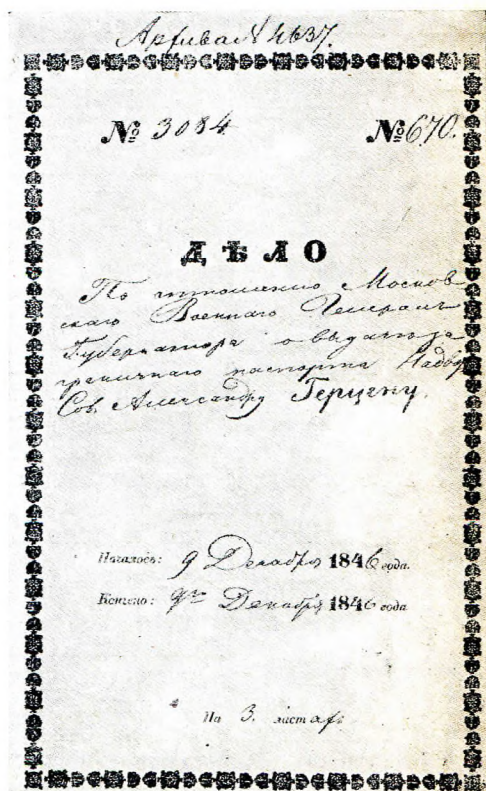 Архива № 4637.
№ 3084 № 670.
ДѢЛО
По отношенію Москов
скаго Военнаго Генералъ
Губернатора о выдачѣ за
граничнаго паспорта Надвор
Сов. Александру Герцену.
Началось: 9 Декабря 1846 года.
Кончено: 9го Декабря 1846 года
На 3. листах